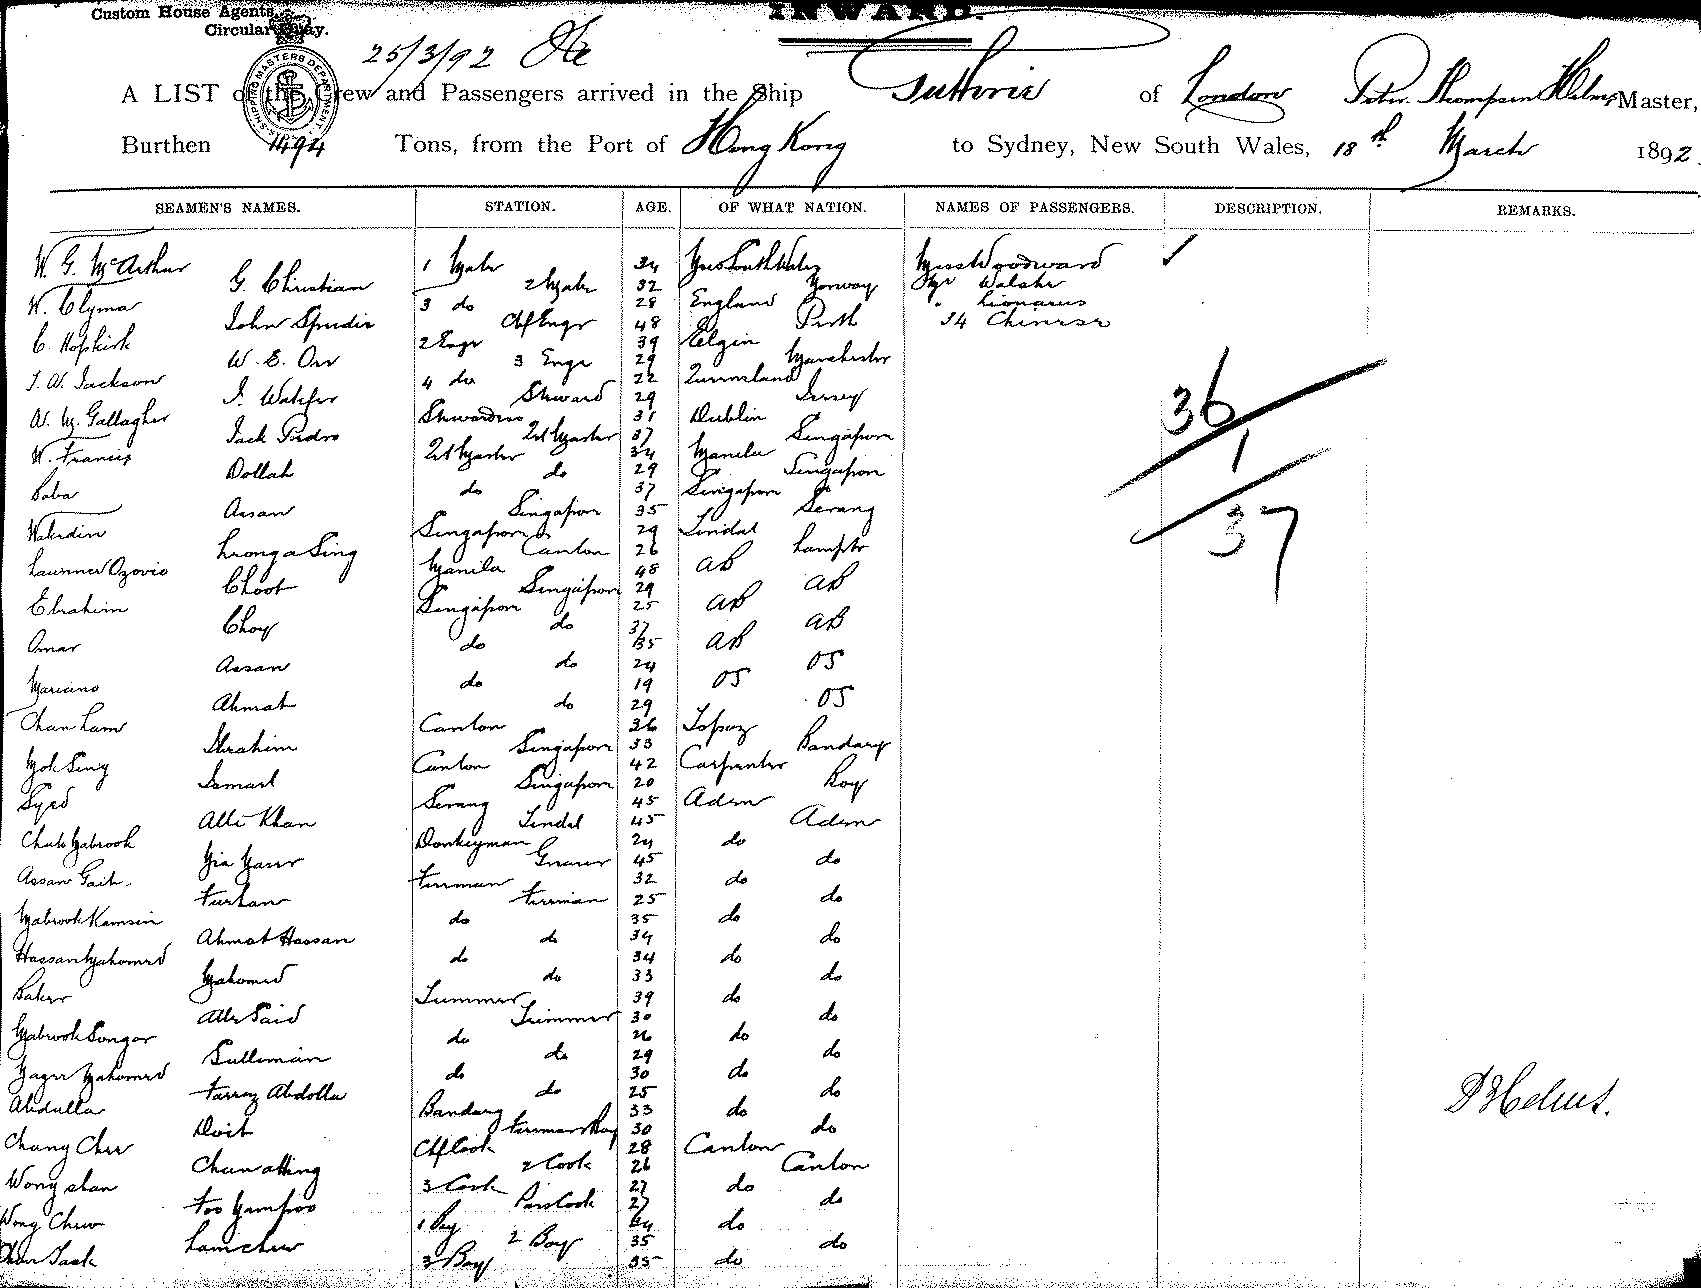 Custom House Agents,
Circular Quay.
INWARD.
25/3/92
A LIST of the Crew and Passengers arrived in the Ship Guthrie of London Peter Thompson Helms Master,
Burthen 1494 Tons, from the Port of Hong Kong to Sydney, New South Wales, 18th March 1892.
SHIPPING MASTERS DEPARTMENT
SEAMEN'S NAMES. STATION. AGE. OF WHAT NATION. NAMES OF PASSENGERS. DESCRIPTION. REMARKS.
W. G. McArthur 1 Mate 34 New South Wales Miss Woodward
G. Christian 2 Mate 32 Norway Mr Walshe
W. Clymo 3 do 28 England "
John Spudie Chf Engr 48 Perth 34 Chinese
C. Hopkirk 2 Engr 39 Elgin
W. E. Orr 3 Engr 29 Manchester
T. W. Jackson 4 do 22 Queensland
J. Steward 29 Jersey
W. M. Gallagher Stewardess 31 Dublin
Jack Pedro Qrt Master 37 Singapore
W. Francis Qrt Master 34 Manila
Dollah do 29 Singapore
Baba do 37 Singapore
Assan Singapore 35 Serang
Singapore 29 Tindal
Leong a Sing Canton 26 Lamptr
Ozovio Manila 48 AB
Choot Singapore 29 AB
Ebrahim Singapore 25 AB
Choy do 37 AB
Omar do 35 AB
Assan do 24 OS
Mariano do 19 OS
Ahmat do 29 OS
Chan Lam Canton 36 Topaz
Ibrahim Singapore 33 Bandary
Mok Sing Canton 42 Carpenter
Ismail Singapore 20 Boy
Syed Serang 45 Aden
Alli Khan Tindal 45 Aden
Mabrook Donkeyman 24 do
Greaser 45 do
Assan Fireman 32 do
Furhan Fireman 25 do
Mabrook Kamsin do 35 do
Ahmat Hassan do 34 do
Hassan Mahomed do 34 do
Mahomed do 33 do
Baker Trimmer 39 do
Alli Said Trimmer 30 do
Mabrook Songor do 26 do
Sulleman do 29 do
Mahomed do 30 do
Farraz Abdolla do 25 do
Abdulla Bandary 33 do
Doit Firemans Boy 30 do
Chang Chee Chf Cook 28 Canton
Chun atting 2 Cook 26 Canton
Wong ahan 3 Cook 27 do
Foo Pars Cook 27 do
Wong Chew 1 Boy do
Lam chew 2 Boy 35 do
3 Boy 35 do
36
1
37
P T Helms.